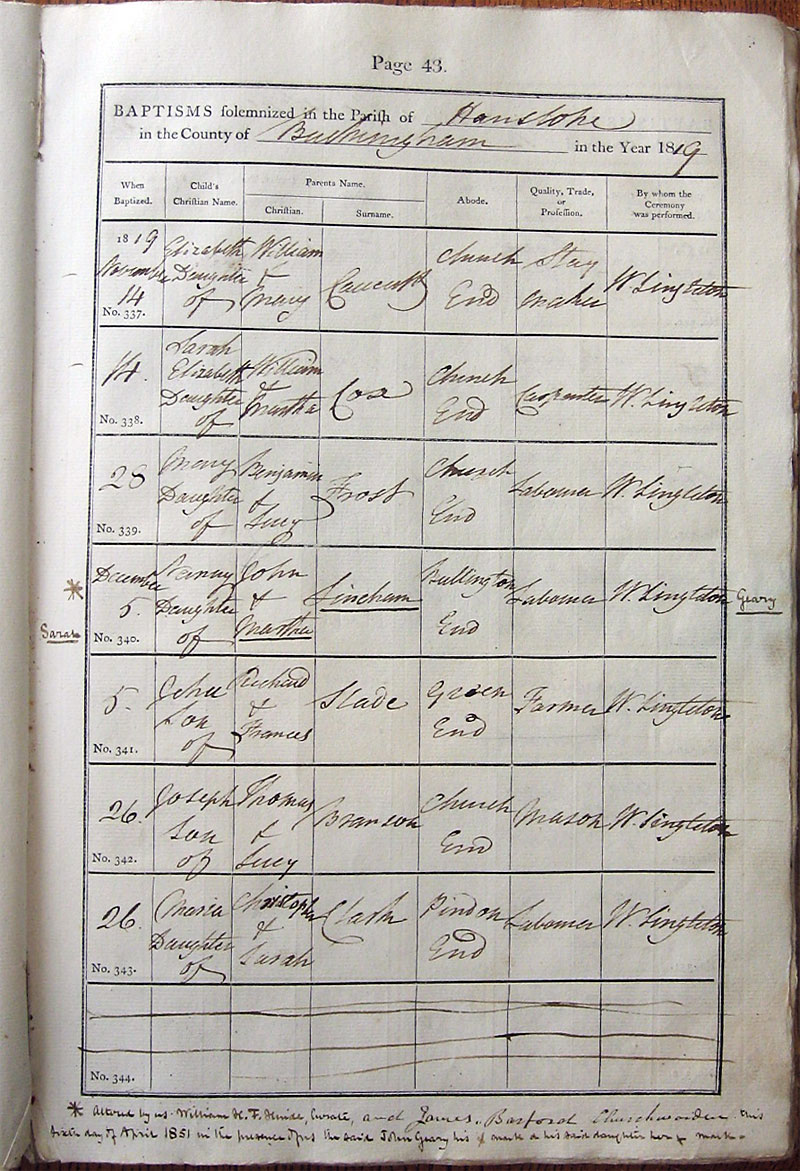 Page 43.
BAPTISMS solemnized in the Parish of Hanslope
in the County of Buckingham in the Year 1819
When Baptized.
Child's Christian Name.
Parents Name.
Christian.
Surname.
Abode.
Quality, Trade, or Profession.
By whom the Ceremony was performed.
1819 Elizabeth William Church Stay
November Daughter & End Maker W. Singleton
14 of Mary
No. 337.
14. Sarah Elizabeth Daughter of William & Martha Cox Church End Carpenter W. Singleton
No. 338.
28 Mary Daughter of Benjamin & Lucy Frost Church End Labourer W. Singleton
No. 339.
* December 5. Daughter of John & Martha Lincham End Labourer W. Singleton Geary
Sarah No. 340.
5. John Son of Richard & Frances Slade Green End Farmer W. Singleton
No. 341.
26. Joseph Son of Thomas & Lucy Branson Church End Mason W. Singleton
No. 342.
26. Maria Daughter of Christopher & Sarah Clark Pindon End Labourer W. Singleton
No. 343.
No. 344.
* Altered by us William H. F. Curate, and James Basford Churchwarden this
sixth day of April 1851 in the presence of us the said John Geary his x mark & his said daughter her x mark